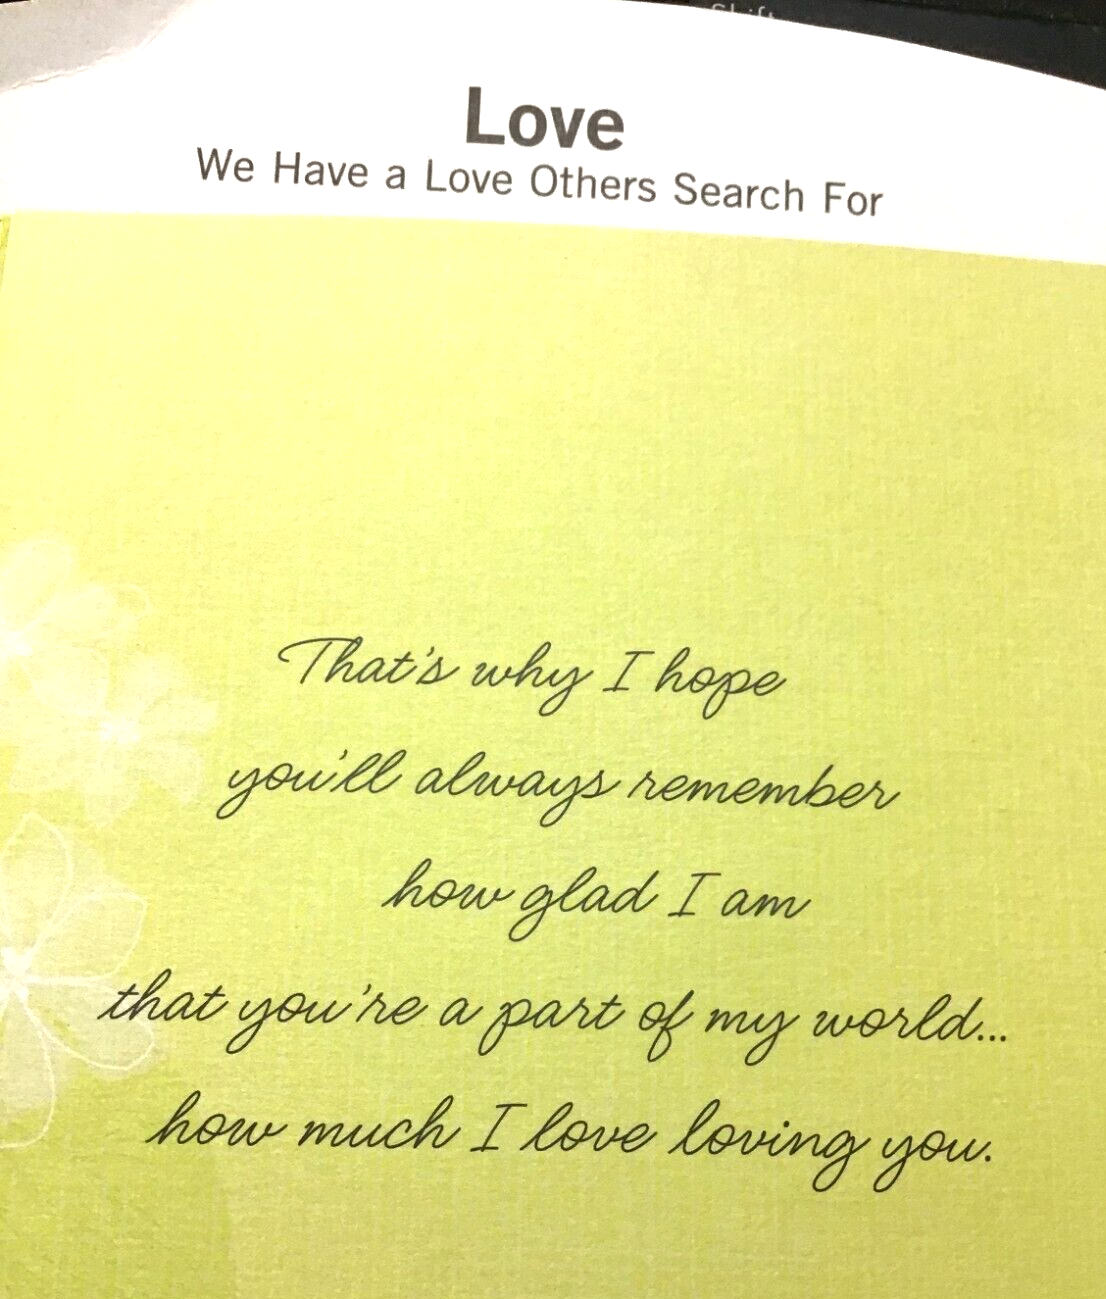 Shift
Love
We Have a Love Others Search For
That's why I hope
you'll always remember
how glad I am
that you're a part of my world...
how much I love loving you.